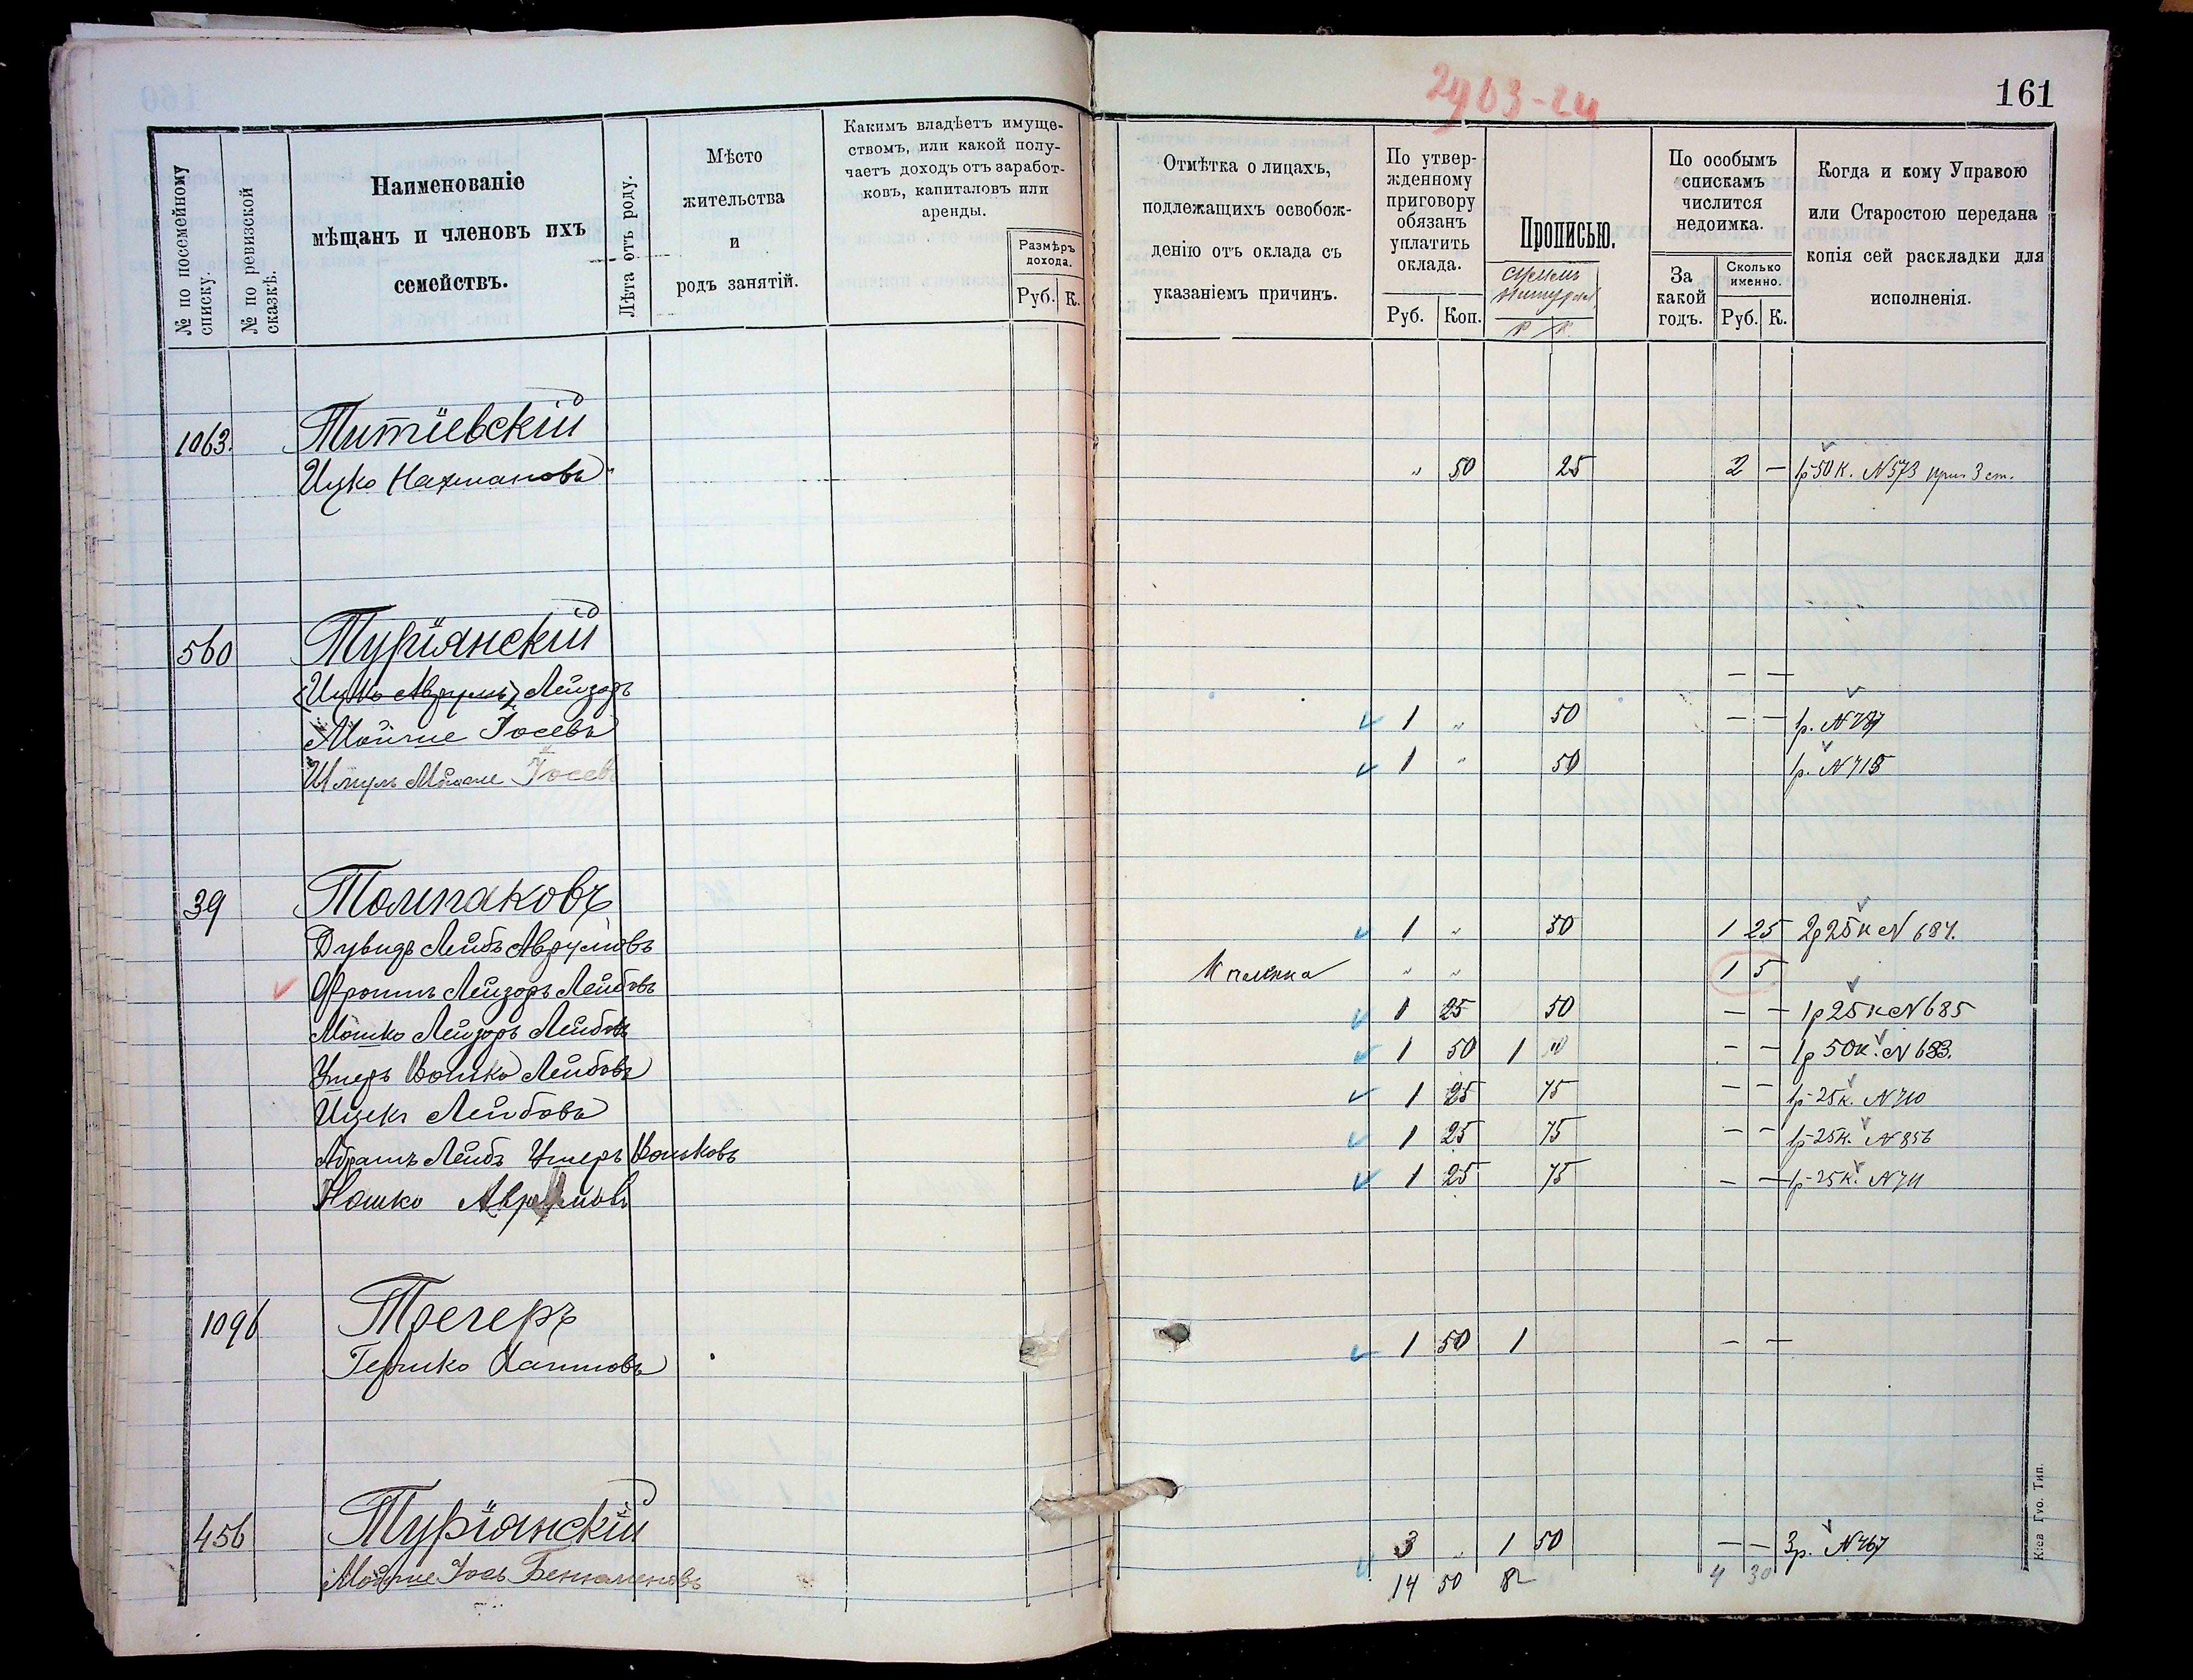 161
№ по посемейному списку.
№ по ревизской сказкѣ.
Наименованіе
мѣщанъ и членовъ ихъ
семействъ.
Лѣта отъ роду.
Мѣсто
жительства
и
родъ занятій.
Какимъ владѣетъ имуще-
ствомъ, или какой полу-
чаетъ доходъ отъ заработ-
ковъ, капиталовъ или
аренды.
Размѣръ
дохода.
Руб. К.
Отмѣтка о лицахъ,
подлежащихъ освобож-
денію отъ оклада съ
указаніемъ причинъ.
По утвер-
жденному
приговору
обязанъ
уплатить
оклада.
Руб. Коп.
Прописью.
Р К.
По особымъ
спискамъ
числится
недоимка.
За
какой
годъ.
Сколько
именно.
Руб. К.
Когда и кому Управою
или Старостою передана
копія сей раскладки для
исполненія.
1063. Титіевскій
Ицко Нахмановъ „ 50 25 2 — 1р 50 к. N 573 3 ст.
560 Туріянскій
(Ицко Аврумъ) Лейзоръ — —
Мойше Іосевъ 1 „ 50 — — 1р. N 787
Шмуль Мойше Іосев 1 „ 50 1р. N 715
39 Толпаковъ
Дувидъ Лейбъ Аврумовъ 1 „ 50 1 25 2р 25 к N 684.
Фроимъ Лейзоръ Лейбовъ Калѣка „ „ 1 5
Мошко Лейзоръ Лейбовъ 1 25 50 — — 1р 25 к N 685
Ушеръ Волько Лейбовъ 1 50 1 „ — — 1р 50к. N 683.
Ицекъ Лейбовъ 1 25 75 — — 1р 25к. N 710
Абрамъ Лейбъ Ушеръ Вольковъ 1 25 75 — — 1р 25к. N 856
Іошко Аврумовъ 1 25 75 — — 1р 25к. N 711
1096 Трегеръ
Гершко Хаимовъ 1 50 1 — —
456 Туріянскій
Мойше Іось Бенюменовъ 3 „ 1 50 — — 3р. N 767
14 50 8 4 30
Кіев. Губ. Тип.